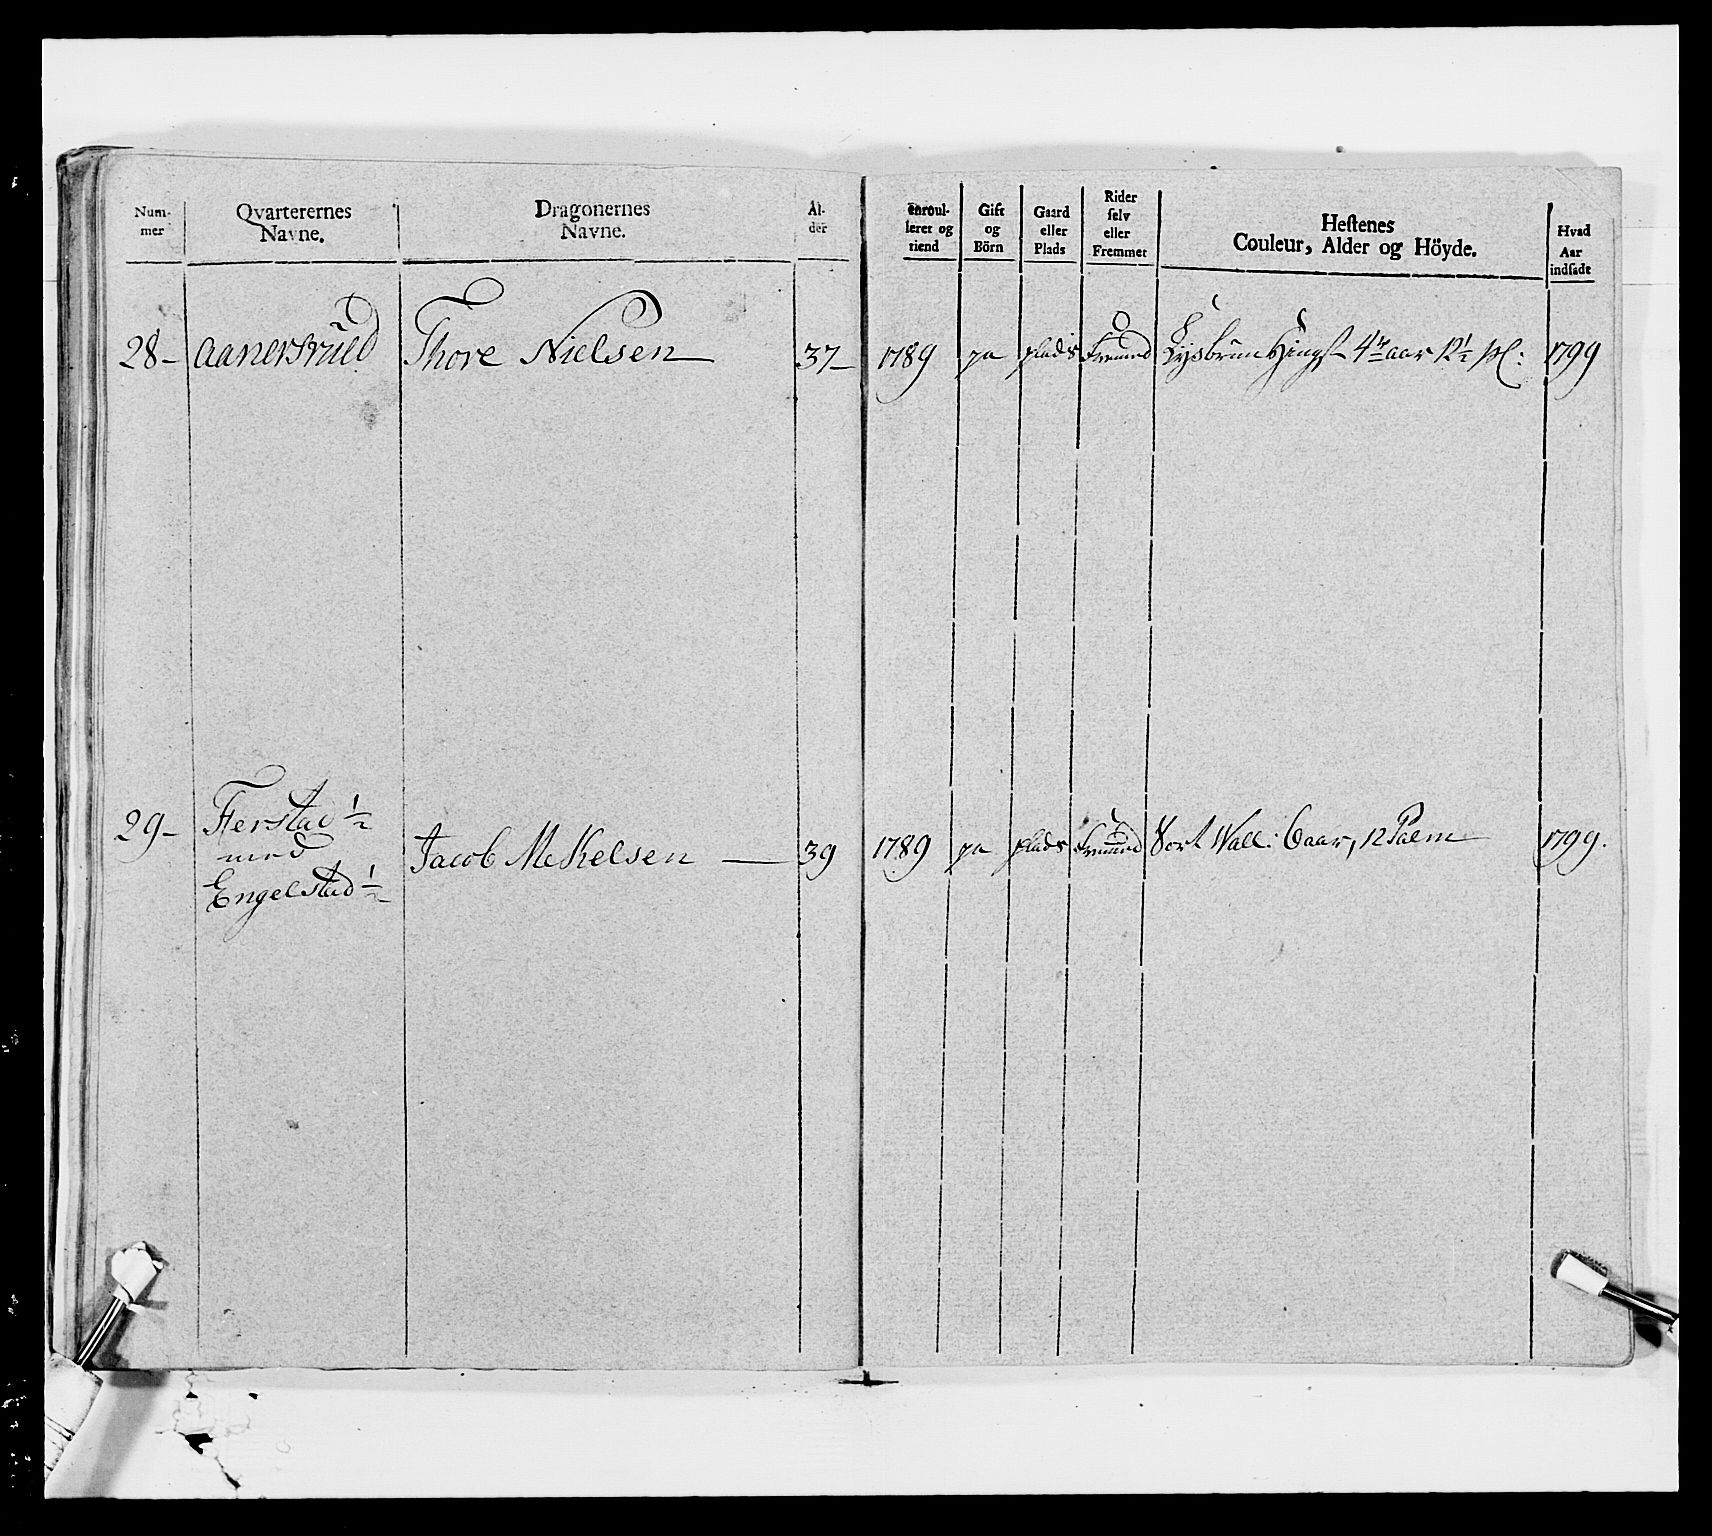 Num-
mer
Qvarterernes
Navne.
Dragonernes
Navne.
Al-
der
enroul-
leret og
tiend
Gift
og
Börn
Gaard
eller
Plads
Rider
selv
eller
Fremmet
Hestenes
Couleur, Alder og Höyde.
Hvad
Aar
indsadt
28- Aanersrued Thore Nielsen 37 1789 ja plads Fremed Lysbrun Hingst 4re aar 12½ pl: 1799
29- Fierstad ½
med
Engelstad ½
Jacob Mekelsen 39 1789 ja plads Fremmed Sort Wall. 6 aar, 12 Palm 1799.